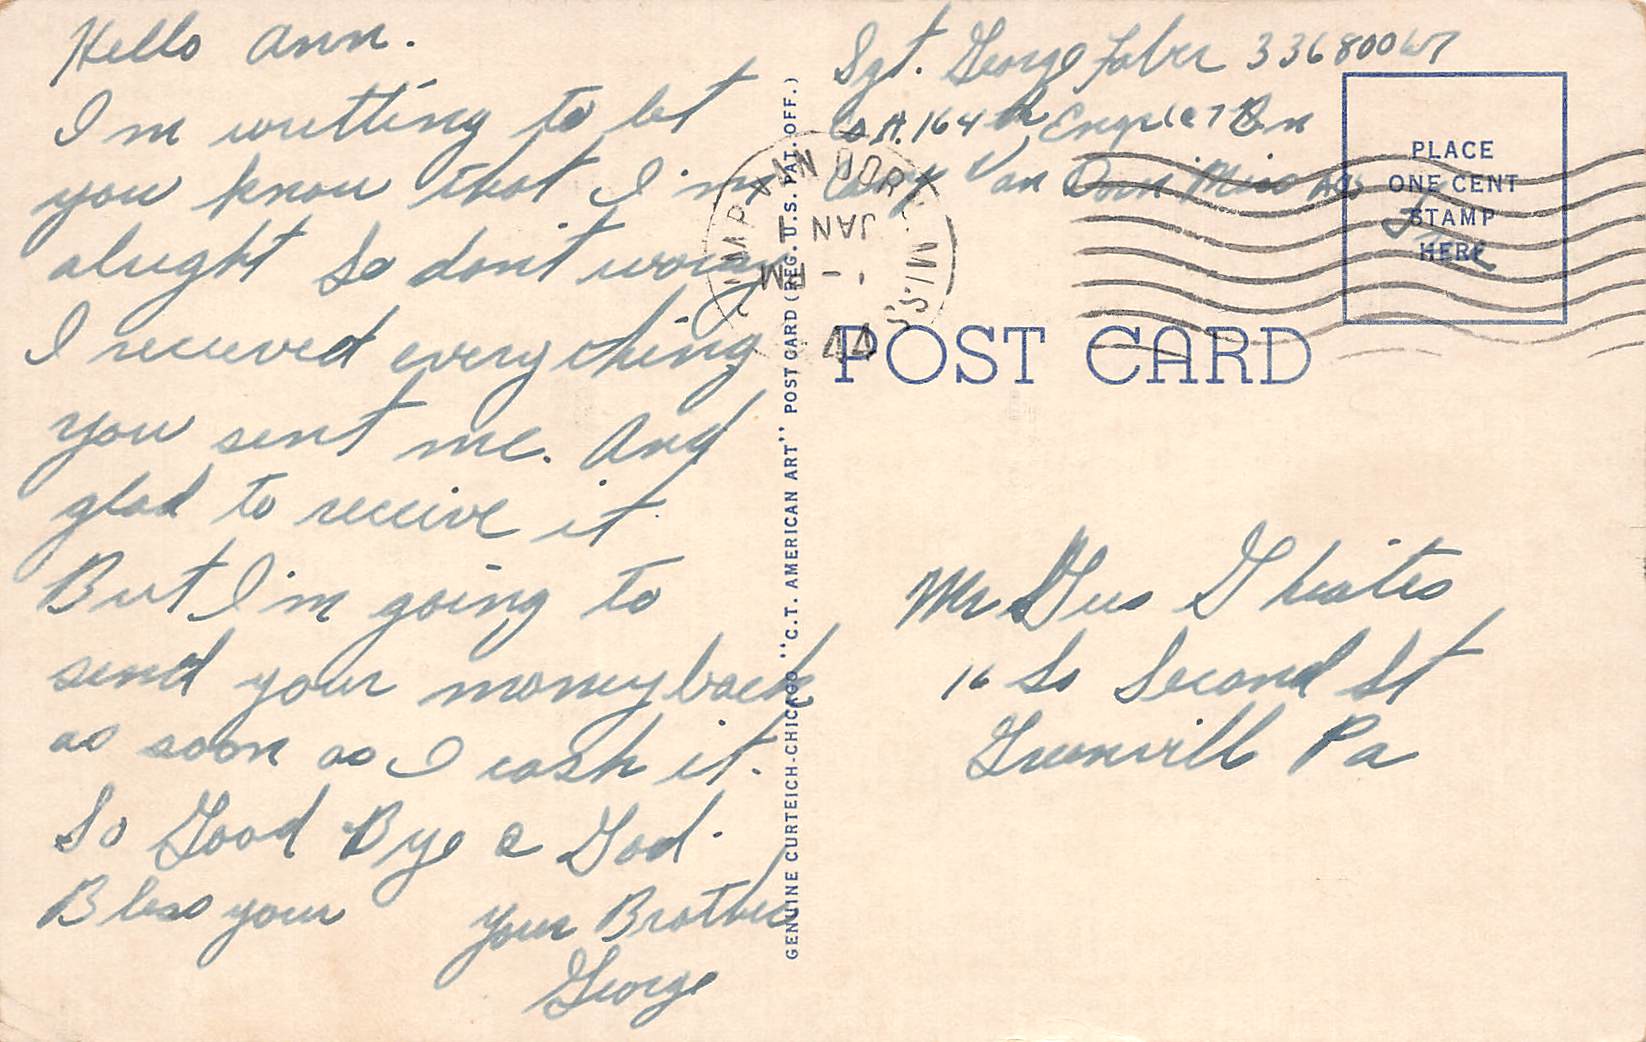 Hello Ann.
I'm writting to let
you know that I'm
alright So don't worray
I recieved everything
you sent me. And
glad to receive it
But I'm going to
send your money back
as soon as I cash it.
So Good Bye & God.
Bless your Your Brother
George
GENUINE CURTEICH-CHICAGO "C.T. AMERICAN ART" POST CARD (REG. U.S. PAT. OFF.)
Sgt. George Faber 33680067
Co. A. 164th Engr (C) Bn
Camp Van Dorn Miss
CAMP VAN DORN MISS.
JAN 1
PM
44
Free
PLACE
ONE CENT
STAMP
HERE
POST CARD
Mr Gus
16 So Second St
Greenville Pa